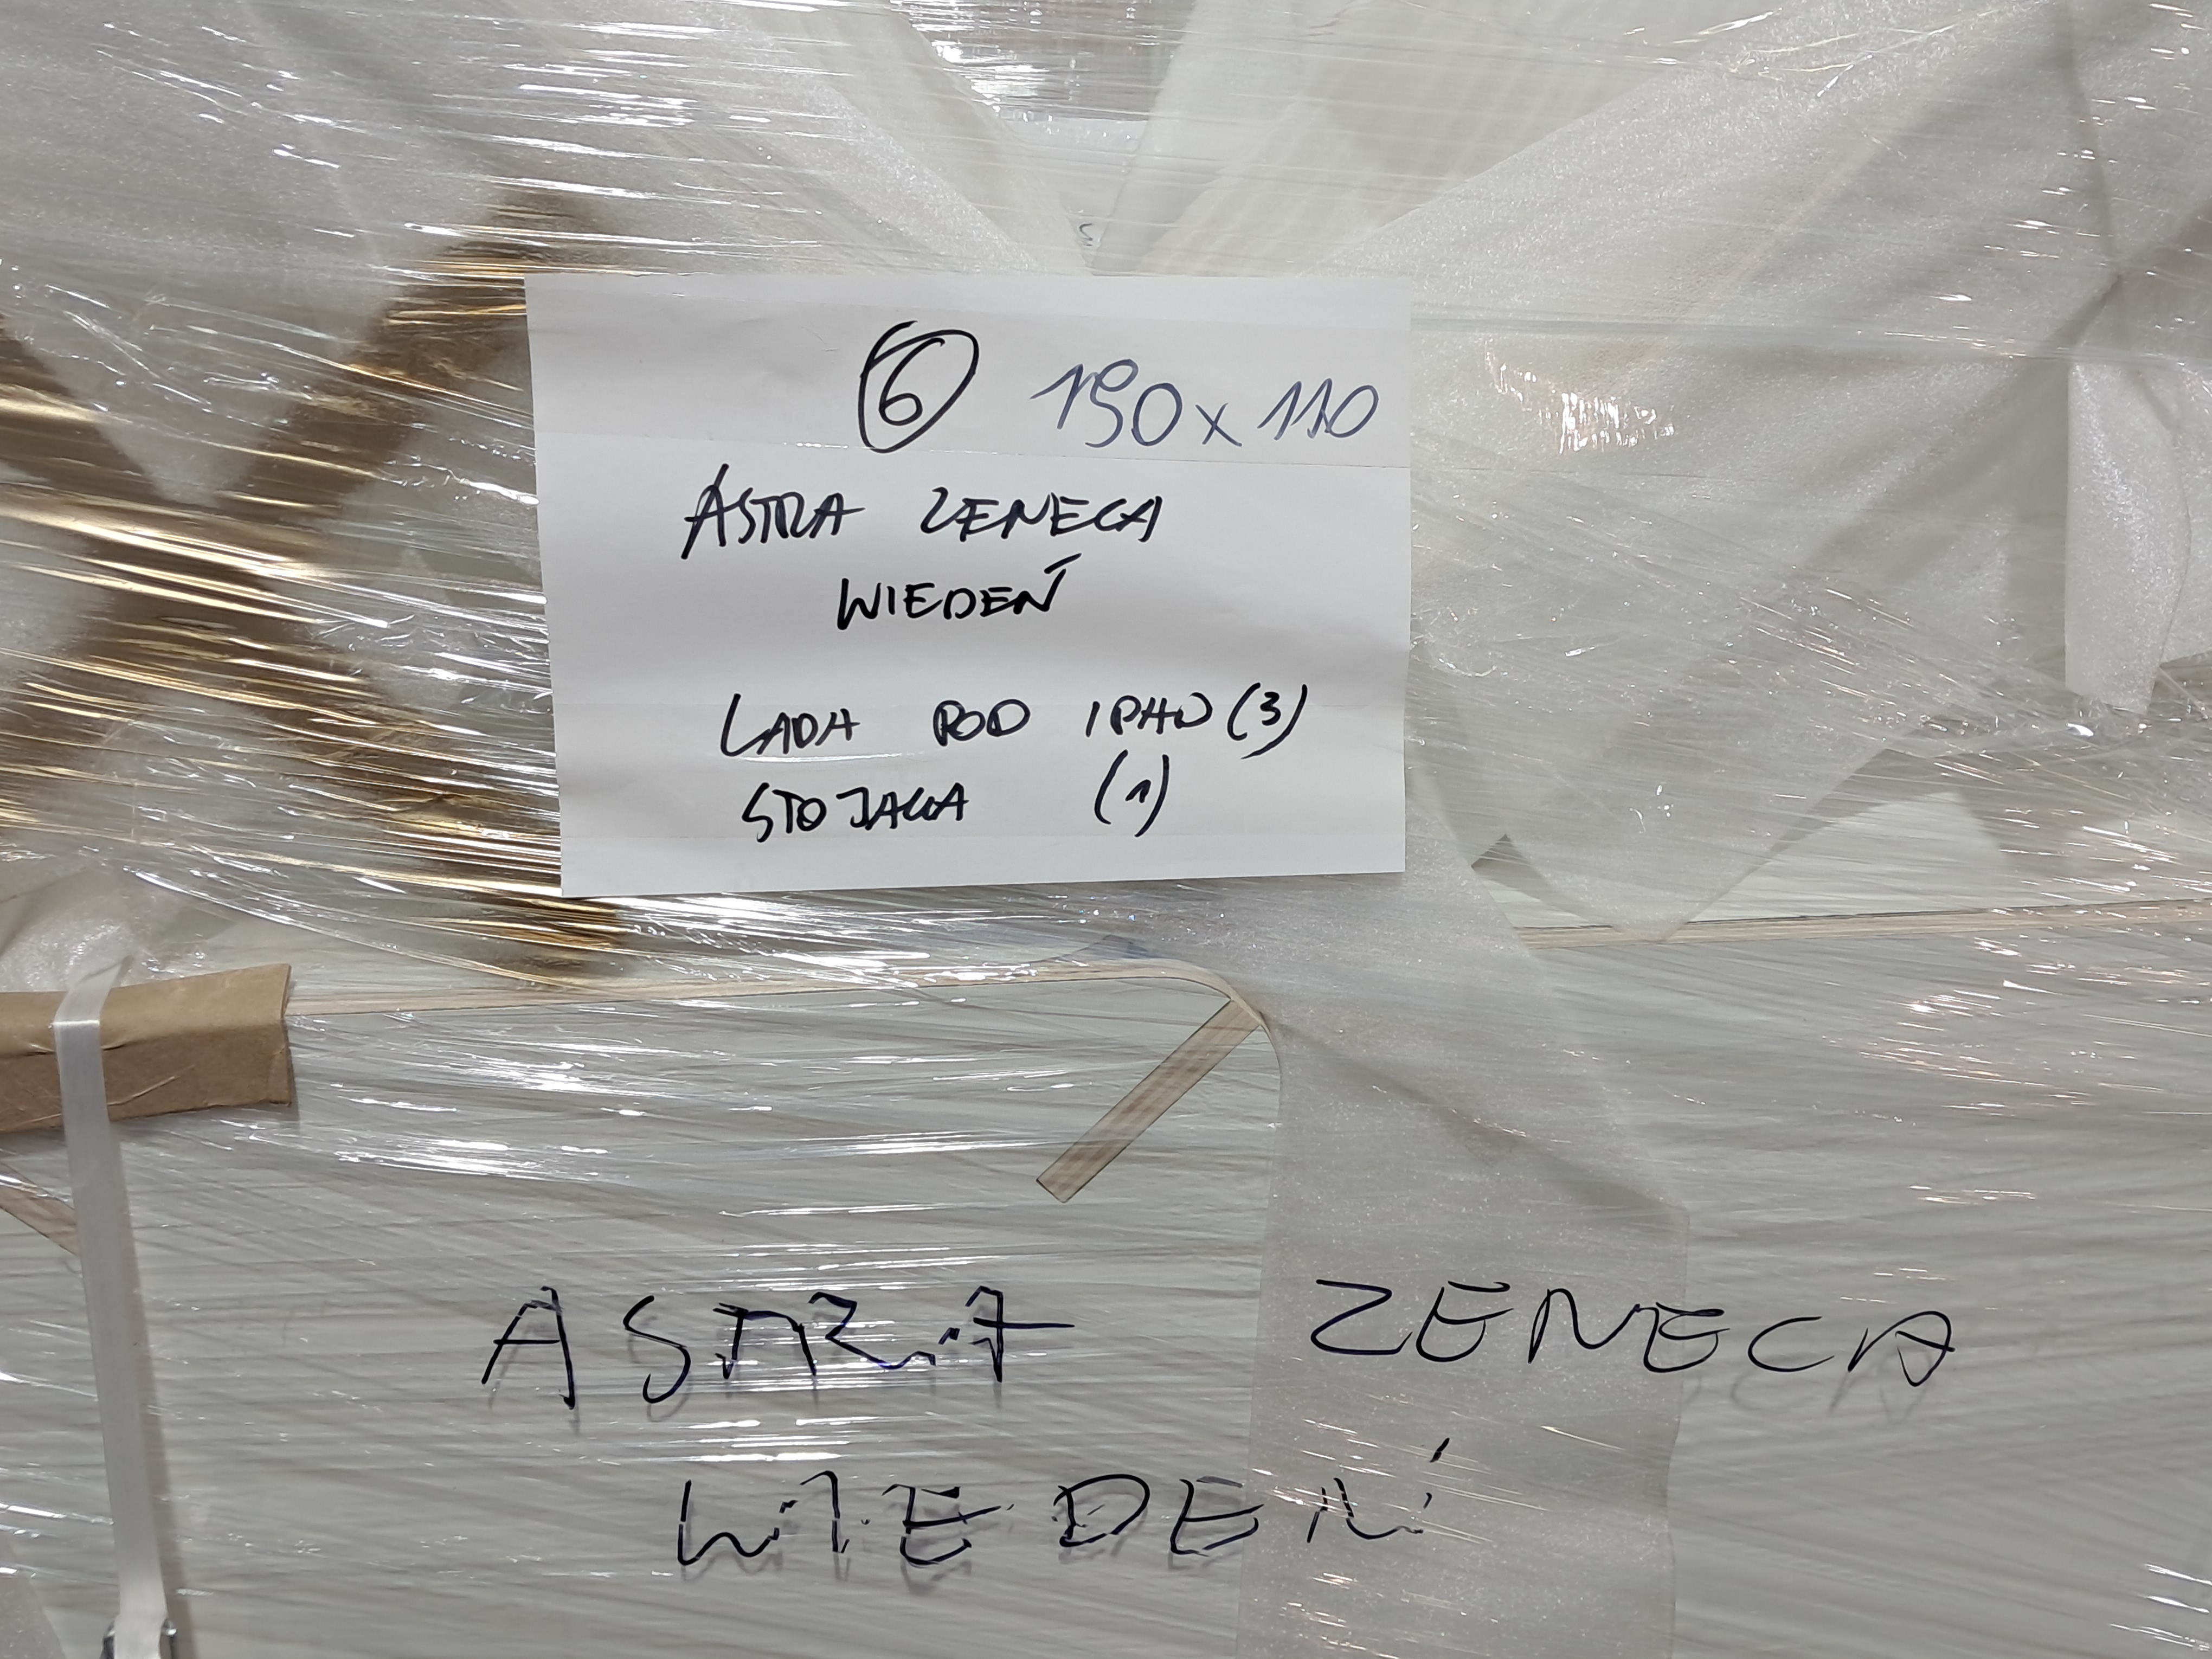 6 190 x 110
ASTRA ZENECA
WIEDEŃ
LADA POD IPAD (3)
STOJAKA (1)
ASTRA ZENECA
WIEDEŃ